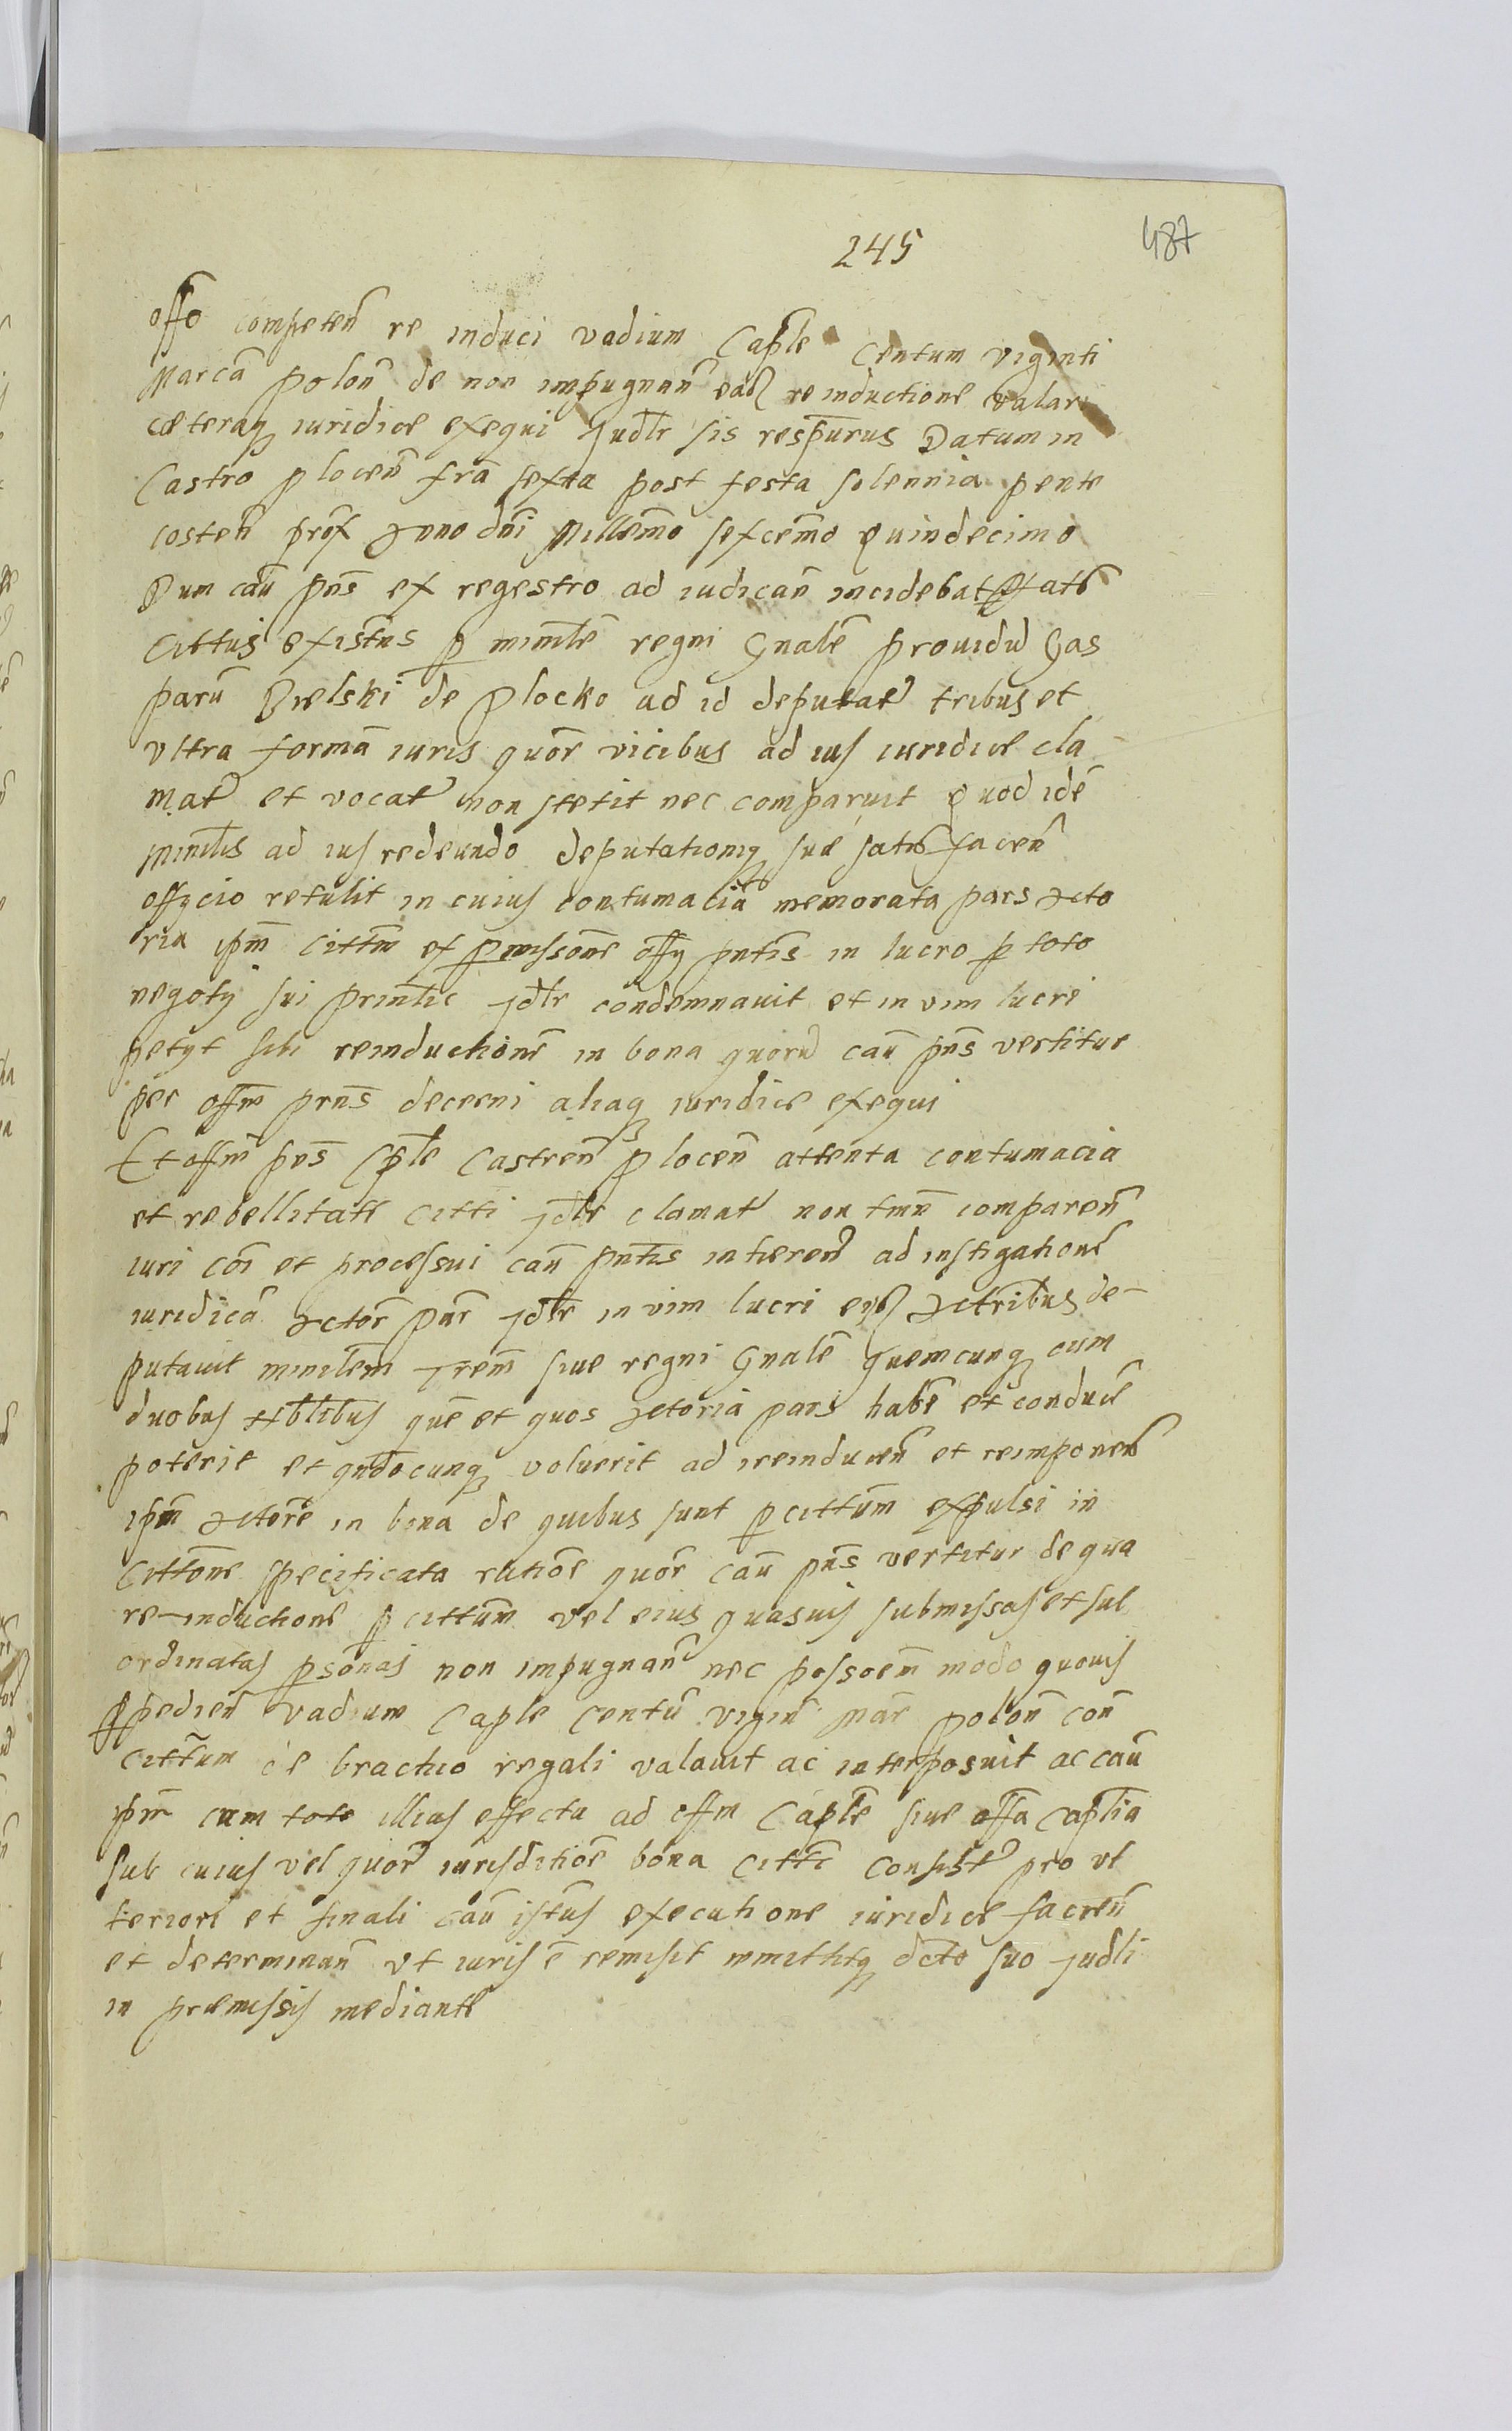 245
487
offo competen̄ re induci vadium Caple Centum viginti
Marcā polon̄ de non impugnan̄ eađ reinductione valari
cæteraq̨ iuridice exequi Judlr sis respurus Datum in
Castro plocen̄ fra sexta post festa solennia pente
costen̄ prox Anno dni Millemo sexcemo quindecimo
Dum cau pns ex regestro ad iudican̄ incidebat
cittus existens p minlē regni Gnalē prouidū Gas
parū Bielski de Plocko ad id deputat tribus et
vltra formā iuris quor vicibus ad ius iuridice cla
mat et vocat non stetit nec comparuit quod idē
minlis ad ius redeundo deputationiq̨ suæ satis facen̄
officio retulit in cuius contumaciā memorata pars Acto
ria ipm cittm ex pmissone offy pntis in lucro p toto
negoty sui printic jdlr condemnauit et in vim lucri
petyt sibi reinductionē in bona quorū cau pns vertitur
per offm prns decerni aliaq̨ iuridice exequi
Et offm pns Cple Castren̄ plocen̄ attenta contumacia
et rebellitate citti jdlr clamat non tmn comparen̄
iuri coi et processui cau pntis inheren̄ ad instigationē
iuridicā Actor par jdlr in vim lucri eiđ Actribus de-
putauit minilem Jrem siue regni Gnalē quemcunq̨ cum
duobus nblibus quē et quos Actoria pars habē et conducē
poterit et qndocunq̨ voluerit ad reinducen̄ et reimponen̄
ipm Actorē in bona de quibus sunt p cittum expulsi in
cittone specificata ratiōe quor cau pns vertitur de qua
re-inductione p cittum vel eius quasuis submissas et sub
ordinatas psonas non impugnan̄ nec possoem modo quouis
Ppedien̄ vadium Caple centū vigin̄ Mar polon̄ con̄
cittum de brachio regali valauit ac interposuit ac cau
ipm cum toto illius effectu ad offm Caple siue offa Caplia
sub cuius vel quor iurisditiōe bona citti consist pro vl
teriori et finali cau istius executione iuridice facien̄
et determinan̄ vt iuris ē remisit remittitq̨ dcto suo judli
in præmissis mediante